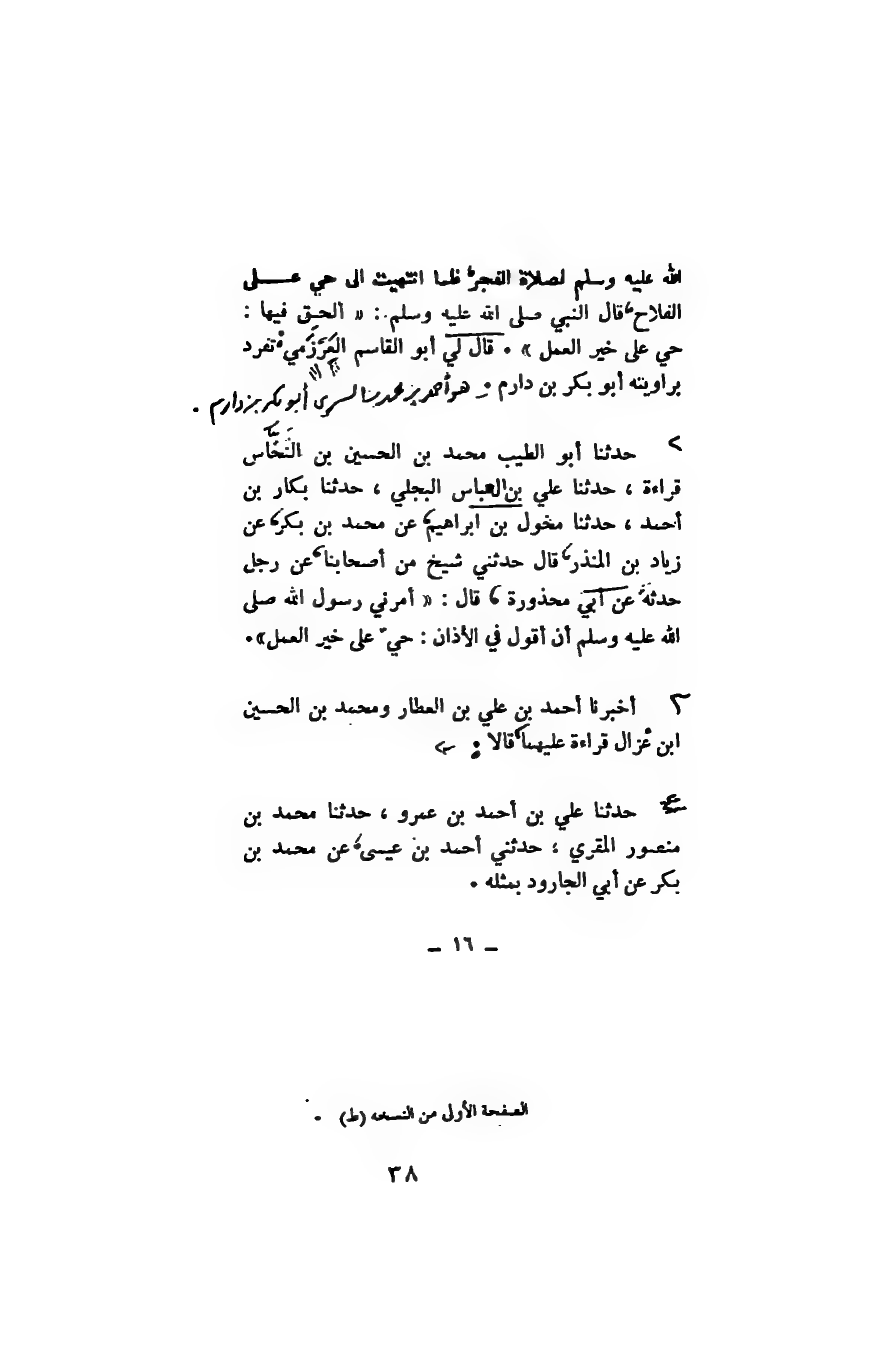 الله عليه وسلم لصلاة الفجر، فلما انتهيت الى حي عــــلى
الفلاح، قال النبي صلى الله عليه وسلم : « ألحق فيها :
حي على خير العمل » . قال لي أبو القاسم العَرْزَمي، تفرد
براويته أبو بكر بن دارم . هو أحمد بن محمد بن السري أبو بكر بن دارم .
٢ حدثنا أبو الطيب محمد بن الحسين بن النَخَّاس
قراءة ، حدثنا علي بن العباس البجلي ، حدثنا بكار بن
أحمد ، حدثنا مخول بن ابراهيم، عن محمد بن بكر، عن
زياد بن المنذر، قال حدثني شيخ من أصحابنا، عن رجل
حدثه، عن أبي محذورة ، قال : « أمرني رسول الله صلى
الله عليه وسلم أن أقول في الأذان : حيّ على خير العمل».
٣ أخبرنا أحمد بن علي بن العطار ومحمد بن الحسين
ابن غُزال قراءة عليهما، قالا :
حدثنا علي بن أحمد بن عمرو ، حدثنا محمد بن
منصور المقري ، حدثني أحمد بن عيسى، عن محمد بن
بكر عن أبي الجارود بمثله .
ـ ١٦ ـ
الصفحة الأولى من النسخه (ط) .
٣٨